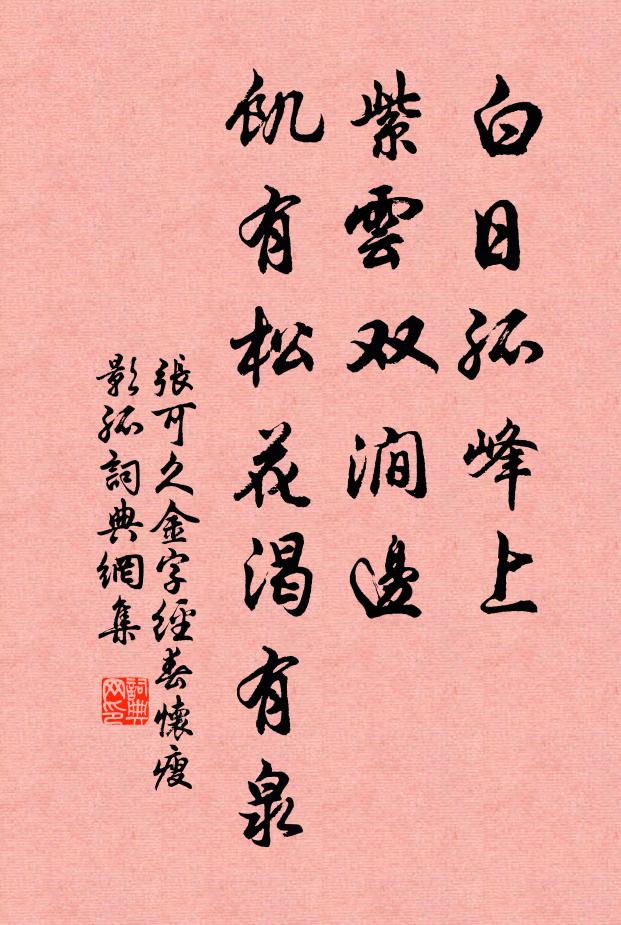 白日孤峰上
紫雲双澗邊
飢有松花渴有泉
張可久金字經春懷瘦
影孤詞典網集
詞典網印